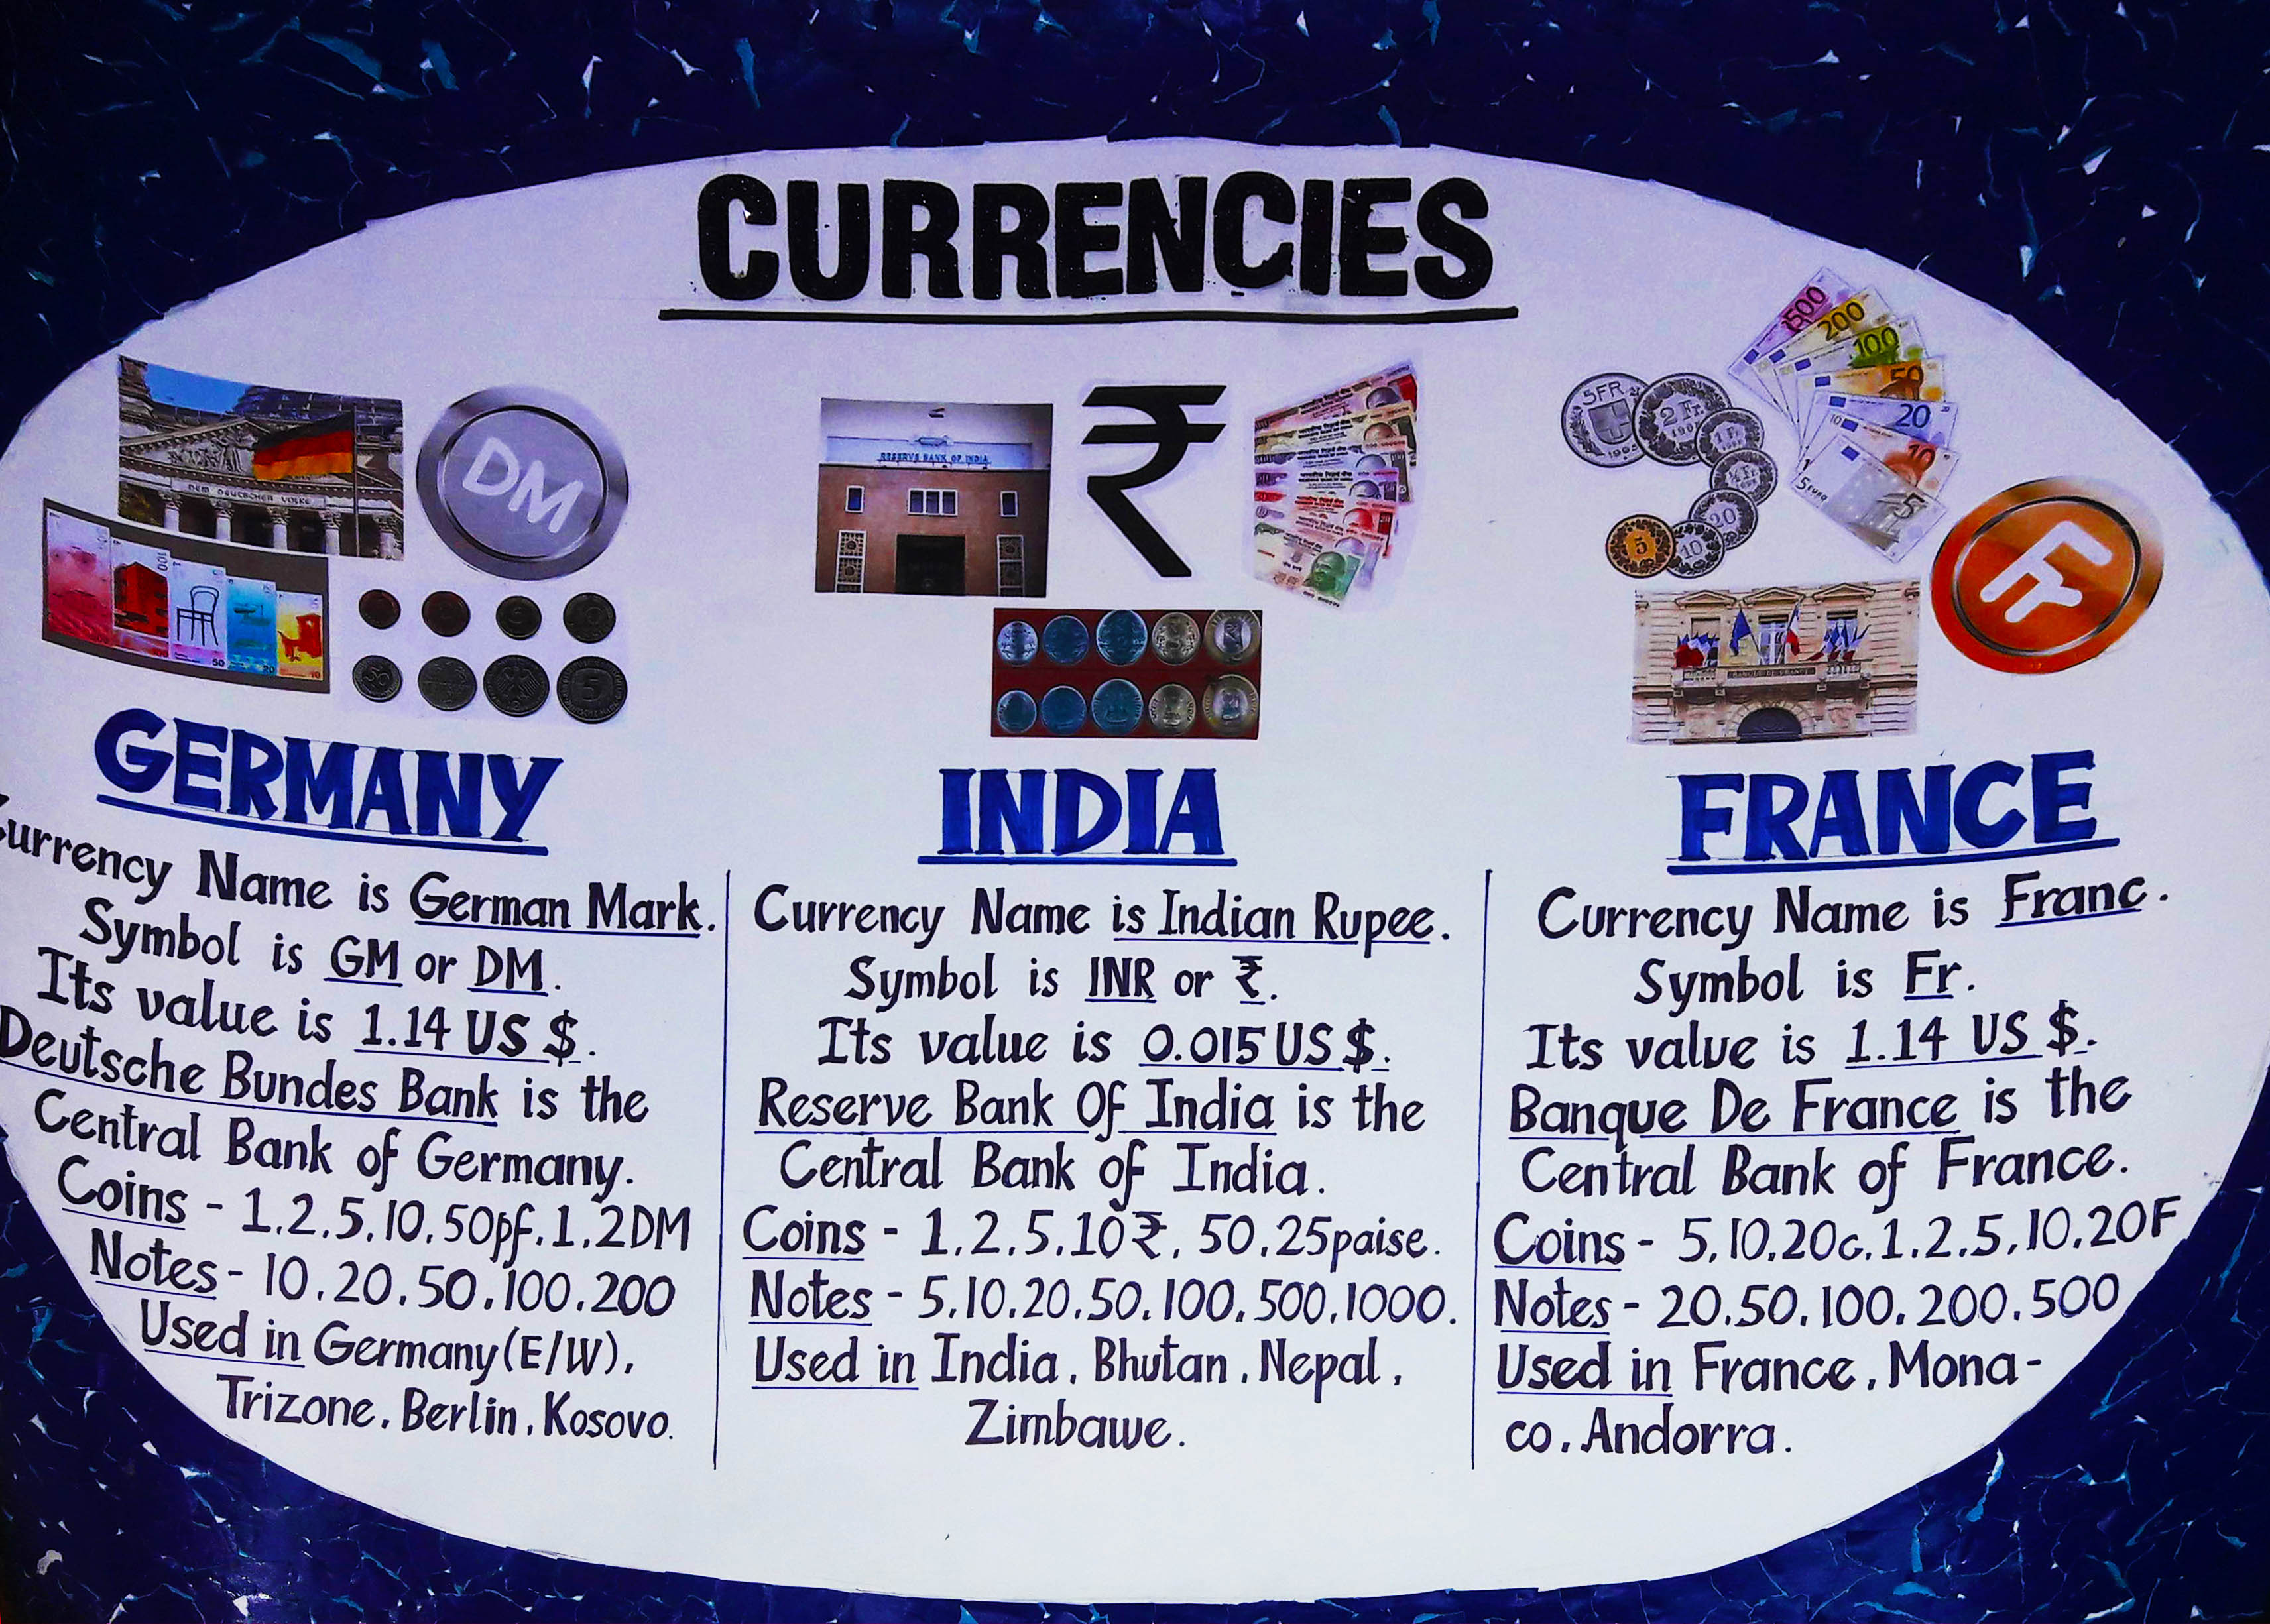 CURRENCIES
DEM DEUTSCHEN VOLKE
DM
100
50
20
10
5
RESERVE BANK OF INDIA
₹
500
200
100
50
20
10
5
5 EURO
5FR.
2 Fr.
1 Fr.
20
10
5
Fr
BANQUE DE FRANCE
GERMANY
urrency Name is German Mark.
Symbol is GM or DM.
Its value is 1.14 US $.
Deutsche Bundes Bank is the
Central Bank of Germany.
Coins - 1.2.5.10.50pf.1.2DM
Notes - 10.20.50.100.200
Used in Germany(E/W).
Trizone. Berlin. Kosovo.
INDIA
Currency Name is Indian Rupee.
Symbol is INR or ₹.
Its value is 0.015 US $.
Reserve Bank Of India is the
Central Bank of India.
Coins - 1.2.5.10₹. 50.25paise.
Notes - 5.10.20.50.100.500.1000.
Used in India. Bhutan. Nepal.
Zimbawe.
FRANCE
Currency Name is Franc.
Symbol is Fr.
Its value is 1.14 US $.
Banque De France is the
Central Bank of France.
Coins - 5.10.20c.1.2.5.10.20F
Notes - 20.50.100.200.500
Used in France. Mona-
co. Andorra.